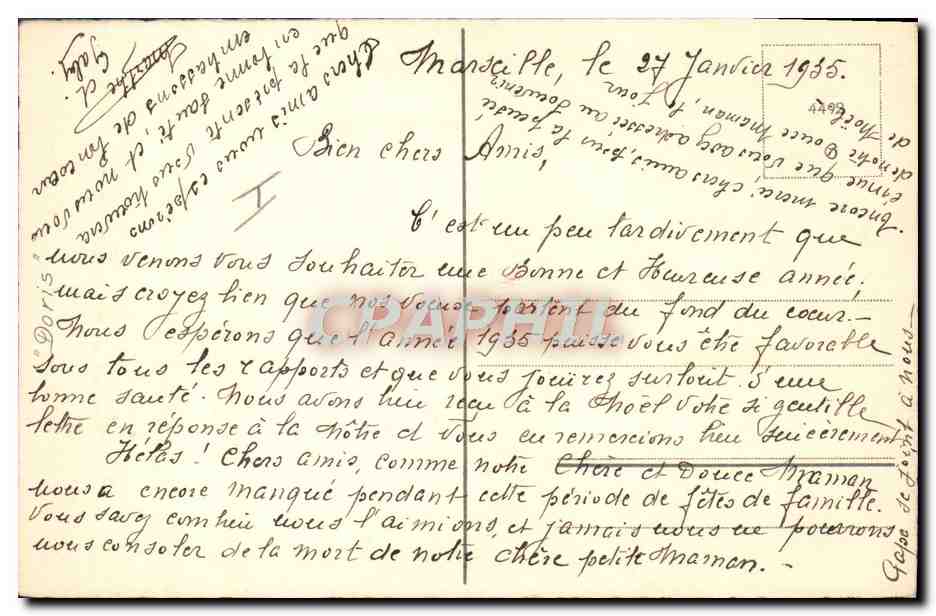 Marseille, le 27 Janvier 1935.
Bien chers Amis,
C'est un peu tardivement que
nous venons vous souhaiter une Bonne et Heureuse année,
mais croyez bien que nos voeux partent du fond du coeur.-
Nous espérons que l'année 1935 puisse vous être favorable
sous tous les rapports et que vous jouirez surtout d'une
bonne santé. Nous avons bien reçu à la Noël votre si gentille
lettre en réponse à la nôtre et vous en remercions bien sincèrement
Hélas! Chers amis, comme notre Chère et Douce Maman
nous a encore manqué pendant cette période de fêtes de famille.
Vous savez combien nous l'aimions, et jamais nous ne pourrons
nous consoler de la mort de notre chère petite Maman.-
Encore merci, chers amis, pour la pensée
émue que vous avez adressée au Souvenir
de notre Douce Maman, le jour
de Noël.-
Chers amis nous espérons
que la présente vous trouvera
en bonne santé, et nous vous
embrassons de bon coeur
Marthe et
Gaby.
"Doris"
Papa se joint à nous-
I
4498
CPARHTI